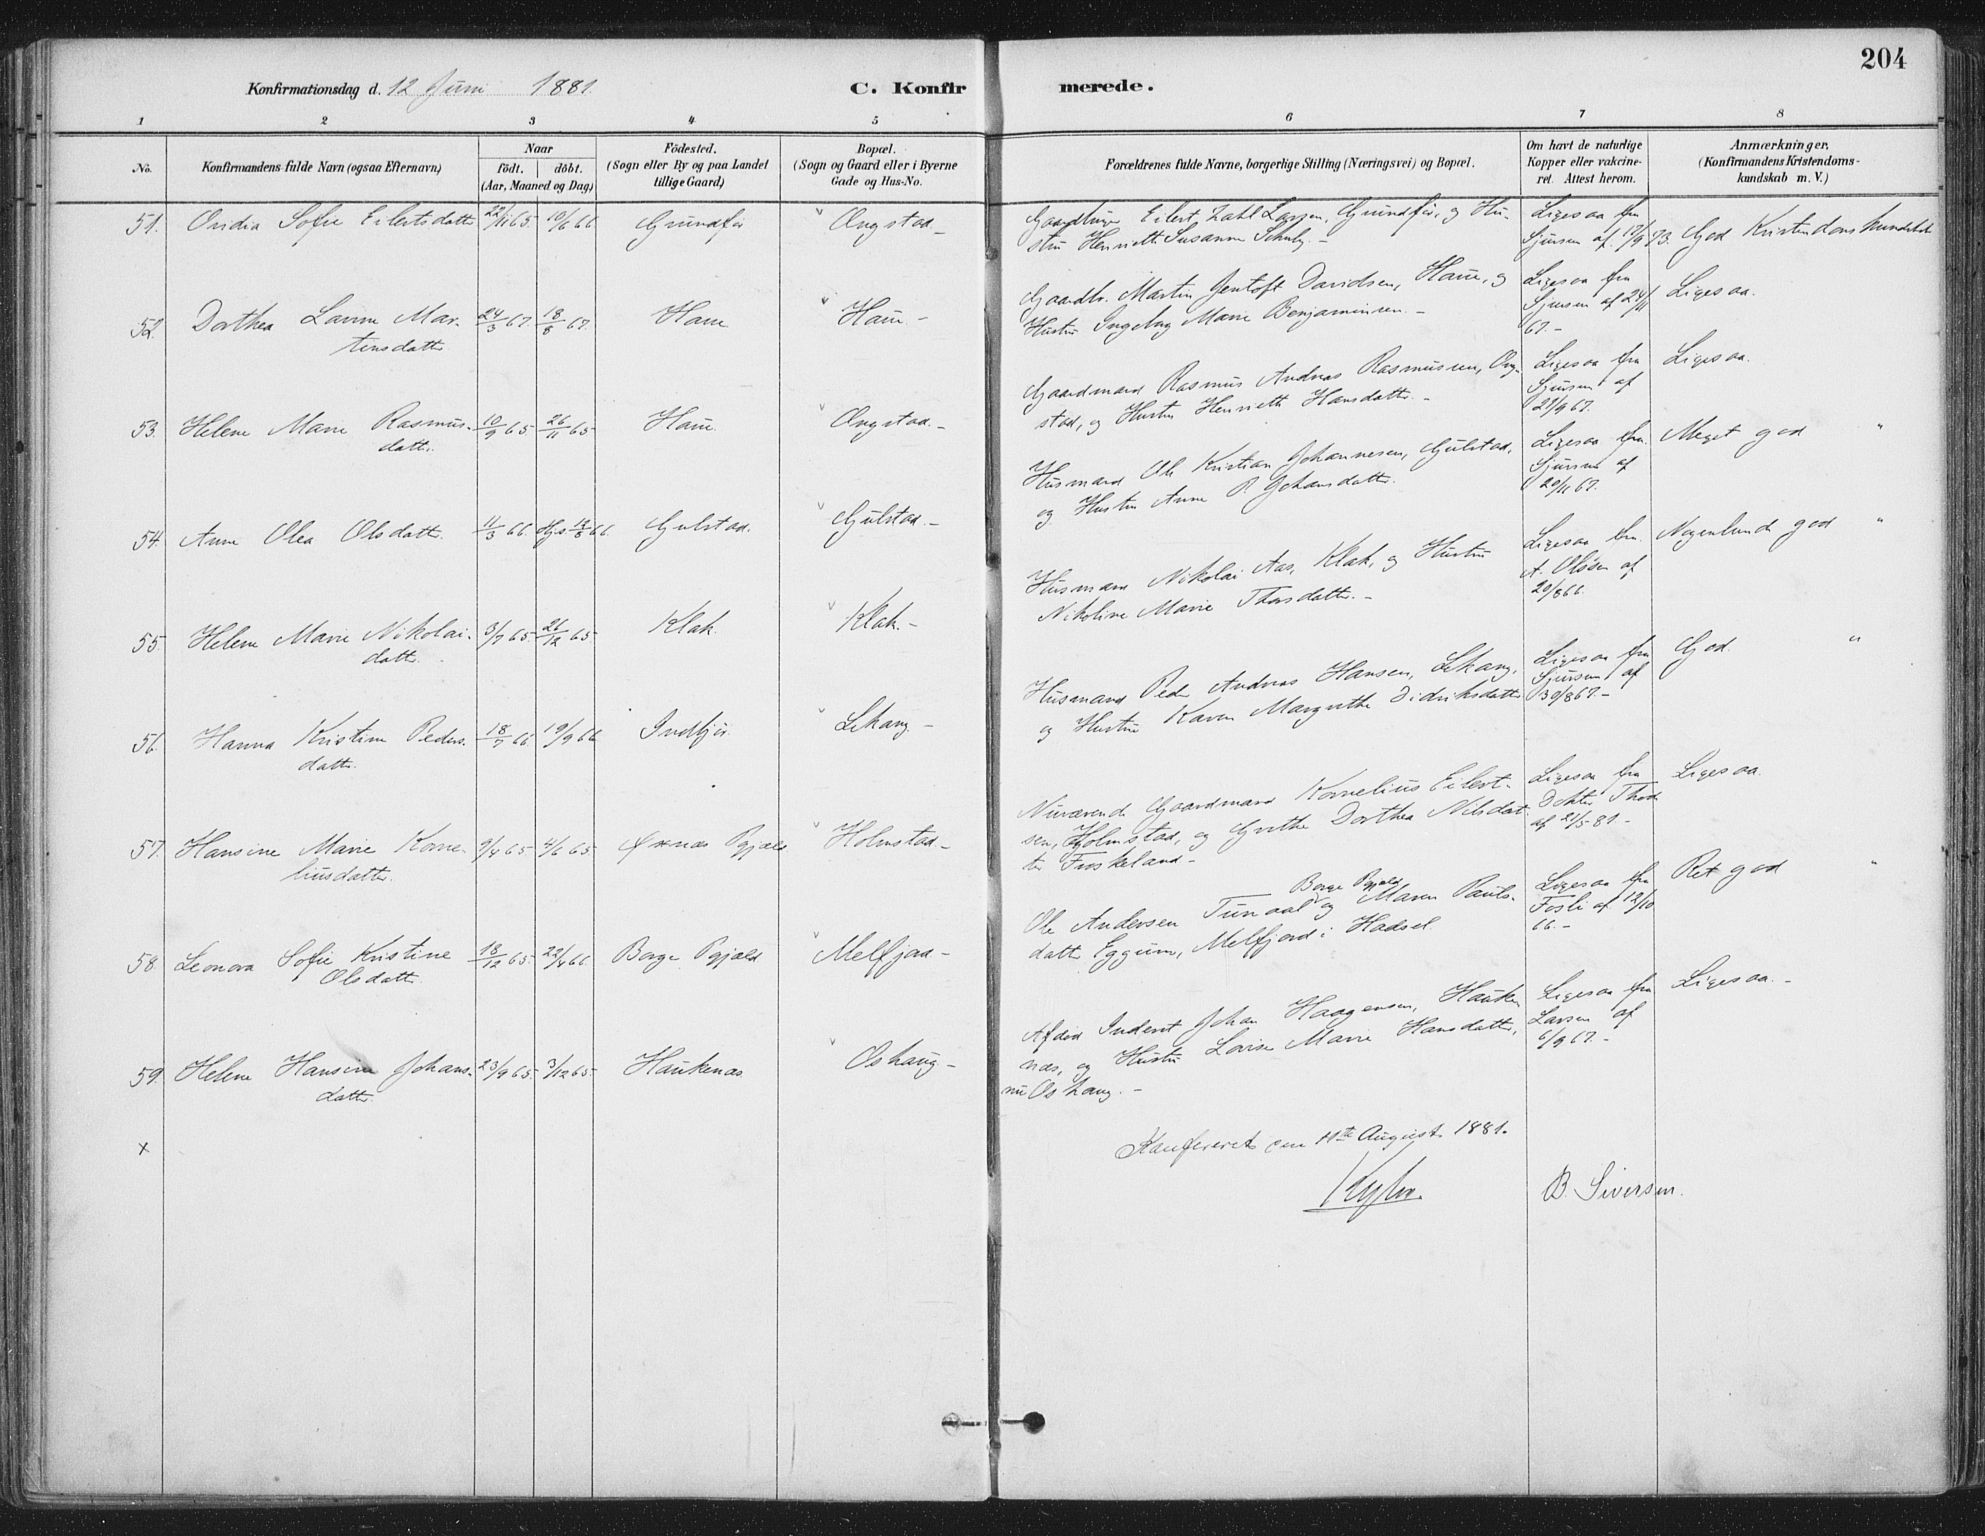 204
Konfirmationsdag d. 12 Juni 1881.
C. Konfirmerede.
1 2 3 4 5 6 7 8
No.
Konfirmandens fulde Navn (ogsaa Efternavn)
Naar
födt. döbt.
(Aar, Maaned og Dag)
Födested.
(Sogn eller By og paa Landet
tillige Gaard)
Bopæl.
(Sogn og Gaard eller i Byerne
Gade og Hus-No.
Forældrenes fulde Navne, borgerlige Stilling (Næringsvei) og Bopæl.
Om havt de naturlige
Kopper eller vakcine-
ret. Attest herom.
Anmærkninger.
(Konfirmandens Kristendoms-
kundskab m. V.)
51. Ovidia Sofie Eilertsdatt 22/11 65. 10/6 66 Grundför Ongstad -
Eilert Zahl Larsen, Grundför, og Hu-
stru Henriette Susanne -
Ligesaa fra
Sjursen af 12/9 73.
God Kristendomskundskab
52. Dorthea Lavine Mar-
tensdatter 24/3 67. 18/8 67. Haue Haue -
Gaardbr. Martin Jentoft Davidsen, Haue, og
Hustru Ingeborg Marie Benjaminsen. -
Ligesaa fra
Sjursen af 24/11
67. -
Ligesaa.
53. Helene Marie Rasmus-
datt. 10/9 65 26/11 65 Haue Ongstad. -
Gaardmand Rasmus Andreas Rasmussen, Ong-
stad, og Hustru Henriette Hansdatter. -
Ligesaa fra
Sjursen af
21/9 67.
Ligesaa.
54. Anne Olea Olsdatter. 11/3 66 Hjs 18/3 66 Gulstad. Gulstad. -
Husmand Ole Kristian Johannesen, Gulstad,
og Hustru Anne P. Johansdatter.
Ligesaa fra
Sjursen af
20/11 67.
Meget god "
55. Helene Marie Nikolai-
datt. 3/7 65. 26/12 65 Klak. Klak. -
Husmand Nikolai Aas, Klak, og Hustru
Nikoline Marie Thorsdatter. -
Ligesaa fra
A. Olsen af
20/8 66.
Nogenlunde god "
56. Hanna Kristine Peders-
datt. 18/7 66. 19/9 66 Indfjör. Lekang -
Husmand Peder Andreas Hansen, Lekang,
og Hustru Karen Margrethe Didriksdatter
Ligesaa fra
Sjursen af
30/8 67. -
God. "
57. Hansine Marie Korne-
liusdatter. 9/4 65 4/6 65 Öxnæs Pgjæld. Holmstad -
Nuværende Gaardmand Kornelius Eilert-
sen, Holmstad, og Grethe Dorthea Nilsdat-
ter Froskeland -
Ligesaa fra
Dokter
af 21/5 81 -
Ligesaa.
58. Leonora Sofie Kristine
Olsdatter. 18/12 65. 22/4 66. Borge Pgjæld Melfjord -
Borge Pgjæld
Ole Andersen Tunaal og Maren Pauls-
datt. Eggum, Melfjord i Hadsel
Ligesaa fra
Fosli af 12/10
66. -
Ret god "
59. Helene Hansine Johans-
datt. 23/9 65. 3/12 65. Haukenæs Oshaug -
Afdöd Inderst Johan Haagensen, Hauke-
næs, og Hustru Lovise Marie Hansdatter,
nu Oshaug. -
Ligesaa fra
Larsen af
6/9 67. -
Ligesaa. -
x
Konfereret den 11te August 1881.
B. Siversen.